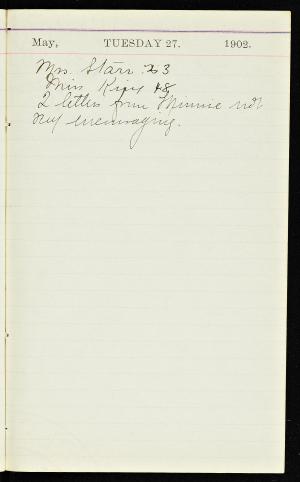 May, TUESDAY 27. 1902.
Mrs. Starr x3
Miss King x8
2 letters from Minnie not
very encouraging.